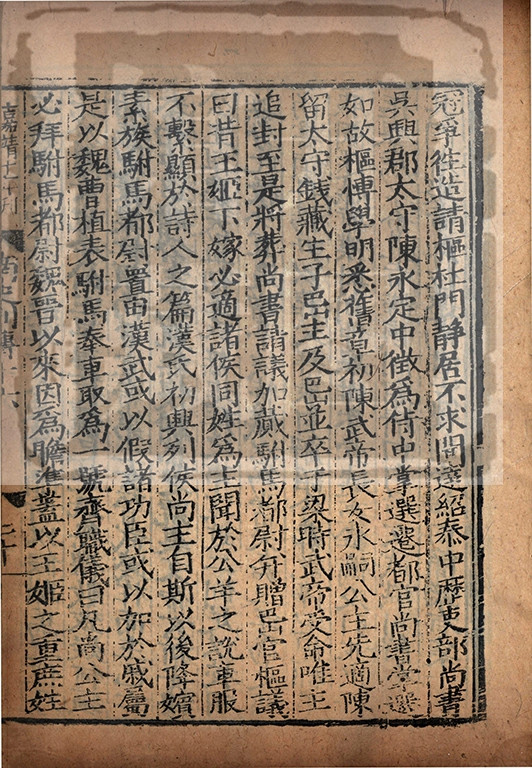 冠爭往造請樞杜門靜居不求聞達紹泰中歷吏部尚書
吳興郡太守陳永定中徵爲侍中掌選遷都官尚書掌選
如故樞博學明悉舊章初陳武帝長女永嗣公主先適陳
留太守錢藏生子岊主及岊並卒于梁時武帝受命唯主
追封至是將葬尚書請議加蕆駙馬都尉并贈岊官樞議
曰昔王姬下嫁必適諸侯同姓爲主聞於公羊之說車服
不繫顯於詩人之篇漢氏初興列侯尚主自斯以後降嬪
素族駙馬都尉置由漢武或以假諸功臣或以加於戚屬
是以魏曹植表駙馬奉車取爲一號齊職儀曰凡尚公主
必拜駙馬都尉魏晉以來因爲瞻準蓋以王姬之重庶姓
嘉靖十年刊
列傳十六